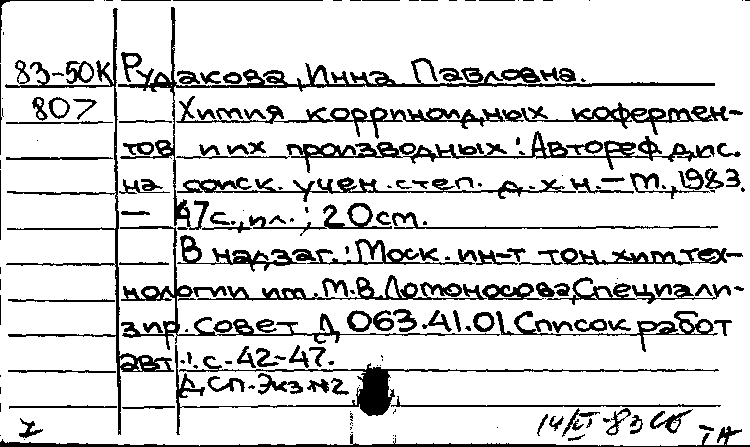 83-50К Рудакова, Инна Павловна.
807 Химия корриноидных кофермен-
тов и их производных : Автореф. дис.
на соиск. учен. степ. д.х.н. – М., 1983.
– 47 с., ил. ; 20 см.
В надзаг. : Моск. ин-т тон. хим. тех-
нологии им. М.В. Ломоносова, Специали-
зир. совет Д 063.41.01. Список работ
авт. : с. 42-47.
ДСП. Экз №2
I 14/VI-83